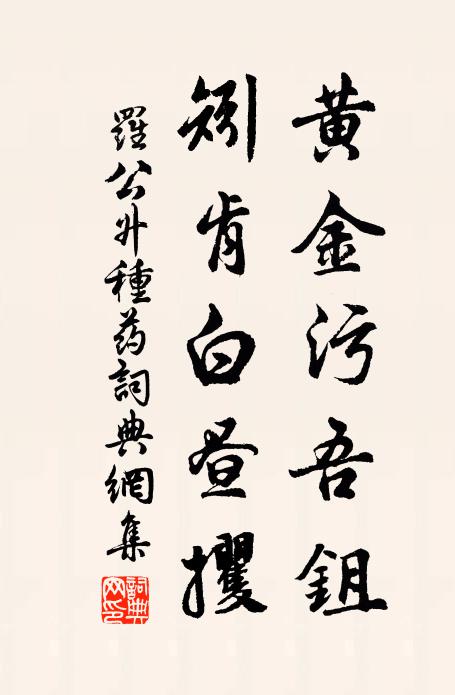 黃金污吾鉏
矧肯白晝攫
羅公升種药詞典網集
詞典網印